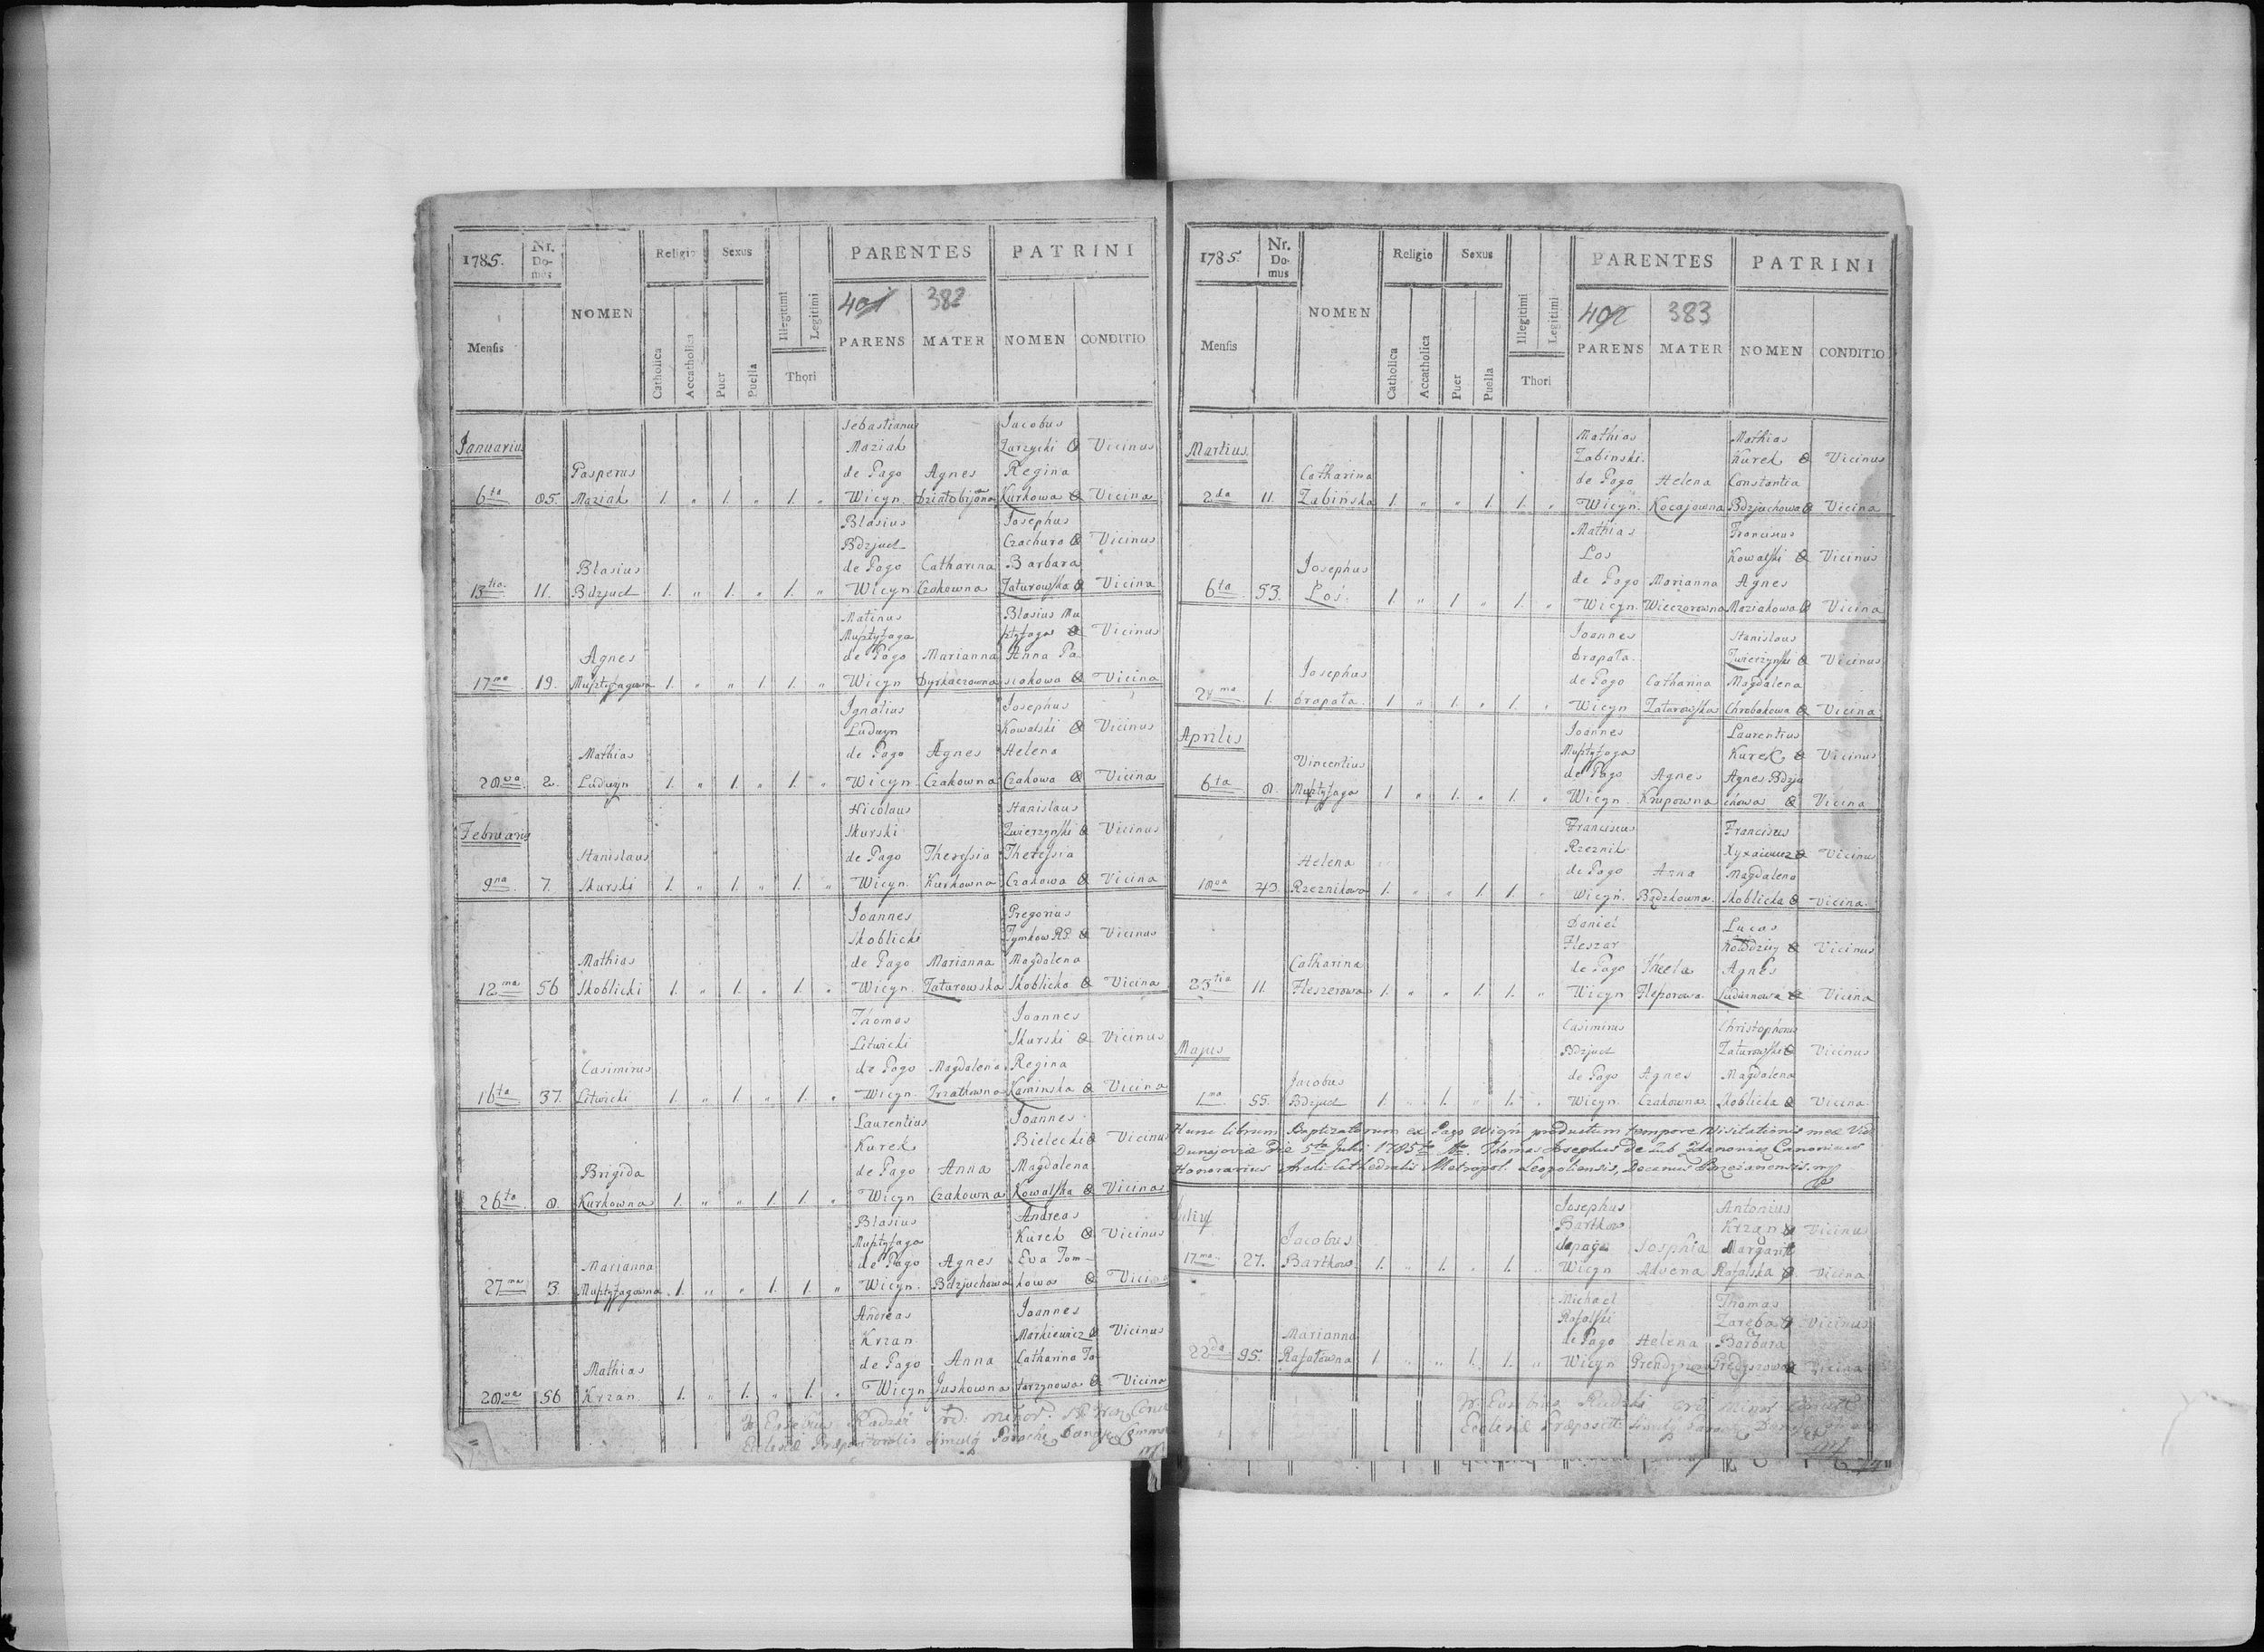 1785. Nr. Do- mus NOMEN Religio Sexus PARENTES PATRINI
401 382
Mensis Catholica Accatholica Puer Puella Illegitimi Legitimi Thori PARENS MATER NOMEN CONDITIO
Januarius
Sebastianus Jacobus
Maziak Zarzycki & Vicinus
Gasperus de Pago Agnes Regina
6ta 85. Maziak 1. " 1. " 1. " Wicyn Kurkowa & Vicina
Blasius Josephus
Bdzjuch Czachura & Vicinus
Blasius de Pago Catharina Barbara
13tia 11. Bdzjuch 1. " 1. " 1. " Wicyn Czakowna Zaturowska & Vicina
Blasius Mu
& Vicinus
Agnes de Pago Marianna Anna Pa
17ma 19. 1. " " 1 1. " Wicyn Dyrkaczowna siakowa & Vicina
Ignatius Josephus
Ludwyn Kowalski & Vicinus
Mathias de Pago Agnes Helena
28va 2. Ludwyn 1. " 1. " 1. " Wicyn Czakowna Czakowa & Vicina
Februarius
Nicolaus Stanislaus
Skurski Zwierzynski & Vicinus
Stanislaus de Pago Theressia Theressia
9na 7. Skurski 1. " 1. " 1. " Wicyn. Kurkowna Czakowa & Vicina
Joannes Gregorius
Skoblicki Tymkow RG. & Vicinus
Mathias de Pago Marianna Magdalena
12ma 56 Skoblicki 1. " 1. " 1. " Wicyn. Zaturowska Skoblicka & Vicina
Thomas Joannes
Litwicki Skurski & Vicinus
Casimirus de Pago Magdalena Regina
16ta 37. Litwicki 1. " 1. " 1. " Wicyn. Kaminska & Vicina
Laurentius Joannes
Kurek Bielecki & Vicinus
Brigida de Pago Anna Magdalena
26ta 8. Kurkowna 1. " " 1 1. " Wicyn Czakowna Kowalska & Vicinas
Blasius Andreas
Kurek & Vicinus
Marianna de Pago Agnes Eva Tom-
27ma 3 1. " " 1. 1. " Wicyn. Bdzjuchowa kowa &
Andreas Joannes
Krzan Markiewicz & Vicinus
Mathias de Pago Anna Catharina Ta
28va 56 Krzan. 1. " 1. " 1. " Wicyn Juskowna tarzynowa & Vicina
1785. Nr. Do- mus NOMEN Religio Sexus PARENTES PATRINI
402 383
Mensis Catholica Accatholica Puer Puella Illegitimi Legitimi Thori PARENS MATER NOMEN CONDITIO
Martius.
Mathias Mathias
Zabinski. Kurek & Vicinus
Catharina de Pago Helena Constantia
2da 11. Zabińska 1. " " 1 1. " Wicyn. Kocajowna Bdzjuchowa & Vicina
Mathias Franciscus
Los Kowalski & Vicinus
Josephus de Pago Marianna Agnes
6ta 53. Łoś. 1 " 1 " 1. " Wicyn. Wieczorowna Maziakowa & Vicina
Joannes Stanislaus
Drapała. Zwierzynski & Vicinus
Josephus de Pago Catharina Magdalena
1. Drapała. 1 " 1. " 1. " Wicyn Zaturowska Chrobakowa & Vicina
Aprilis
Joannes Laurentius
Kurek & Vicinus
Vincentius de Pago Agnes Agnes Bdzju
6ta 8. 1 " 1. " 1. " Wicyn. Krupowna chowa & Vicina
Franciscus Franciscus
Rzeznik & Vicinus
Helena de Pago Anna Magdalena
18va 43. Rzeznikowa 1. " " 1 1. " Wicyn. Bądzkowna Skoblicka & Vicina.
Daniel Lucas
Fleszar & Vicinus
Catharina de Pago Agnes
23tia 11. Fleszerowa 1. " " 1. 1. " Wicyn & Vicina
Majus
Casimirus Christophorus
Bdzjuch Zaturowski & Vicinus
Jacobus de Pago Agnes Magdalena
1ma 55. Bdzjuch 1. " 1. " 1. " Wicyn. Czakowna. Skoblicka & Vicina.
Hunc librum Baptizatorum ex Pago Wicyn productum tempore Visitationis mee
Dunajovie Die 5ta Julii 1785to Thomas Josephus de Canonicus
Honorarius Archi Cathedralis Metropol. Leopoliensis, Decanus Brzezanensis. mp
Josephus Antonius
Bartkow Krzan & Vicinus
Jacobus Margarit
17ma. 27. Bartkow. 1. " 1. " 1. " Wicyn Advena Rafalska & Vicina
Michael Thomas
Rafalski Zareba & Vicinus
Marianna de Pago Helena Barbara
22da 95. Rafałowna 1 " " 1. 1. " Wicyn & Vicina